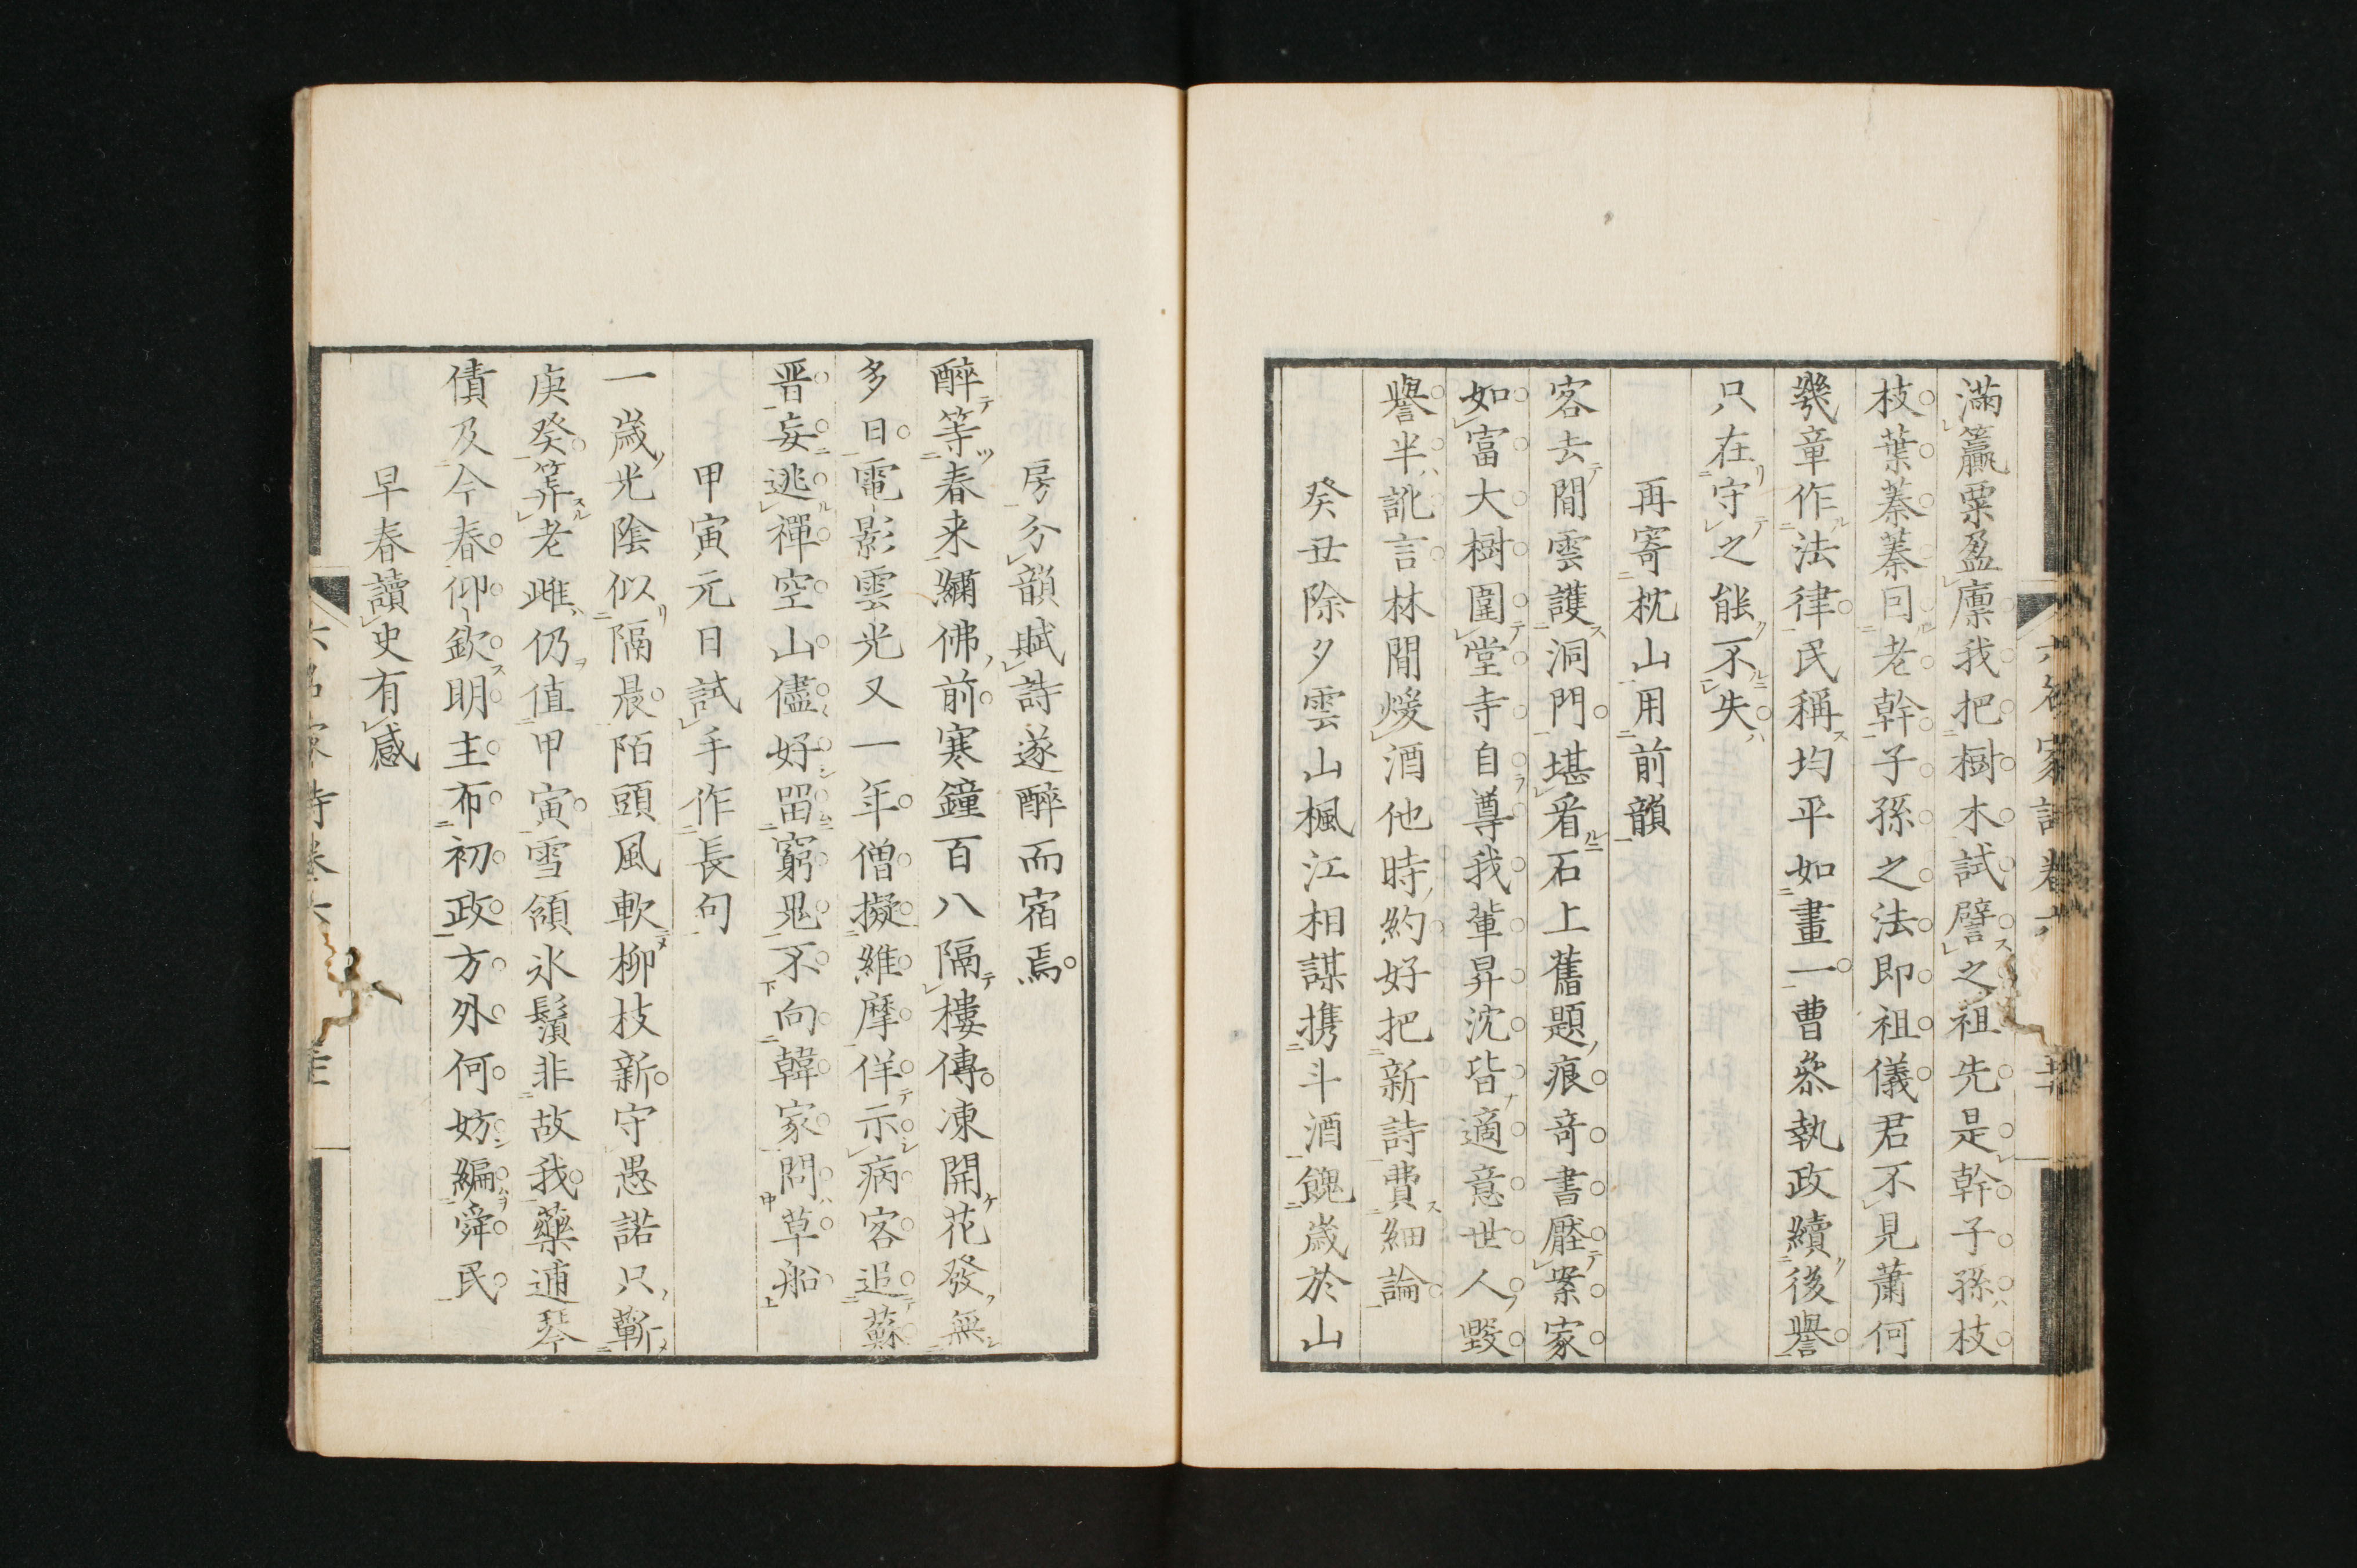 滿籯粟盈廩我把樹木試譬之祖先是幹子孫枝
枝葉蓁蓁同老幹子孫之法即祖儀君不見蕭何
幾章作法律民稱均平如畫一曹參執政續後譽
只在守之能不失
再寄枕山用前韻
客去閒雲護洞門堪看石上舊題痕奇書壓案家
如富大樹圍堂寺自尊我輩昇沈皆適意世人毀
譽半訛言林間煖酒他時約好把新詩費細論
癸丑除夕雲山楓江相謀携斗酒餽歲於山
房分韻賦詩遂醉而宿焉
醉等春来繡佛前寒鐘百八隔樓傳凍開花發無
多日電影雲光又一年僧擬維摩佯示病客追蘇
晋妄逃禪空山儘好留窮鬼不向韓家問草船
甲寅元日試手作長句
一歲光陰似隔晨陌頭風軟柳枝新守愚諾只蘄
庚癸筭老雌仍值甲寅雪頷氷鬚非故我藥逋琴
債及今春仰欽明主布初政方外何妨編舜民
早春讀史有感